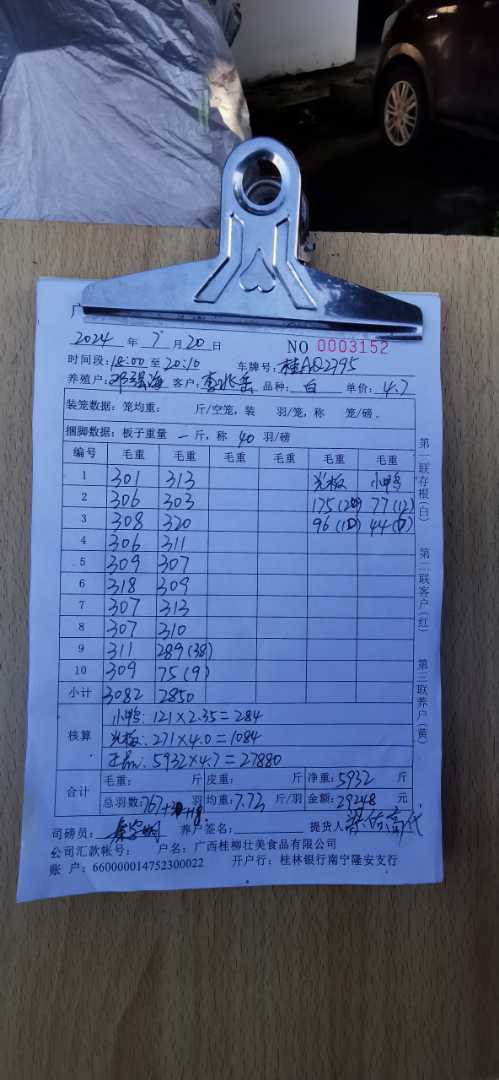 广
2024 年 7 月 20 日 NO 0003152
时间段: 18:00 至 20:10 车牌号: 桂AQ2795
养殖户: 邓强海 客户: 品种: 白 单价: 4.7
装笼数据: 笼均重: 斤/空笼, 装 羽/笼, 称 笼/磅.
捆脚数据: 板子重量 一 斤, 称 40 羽/磅
编号 毛重 毛重 毛重 毛重 毛重 毛重
1 301 313 光板 小鸭
2 306 303 175(20) 77(12)
3 308 320 96(10) 44
4 306 311
5 309 307
6 318 309
7 307 313
8 307 310
9 311 289(38)
10 309 75(9)
小计 3082 2850
核算
小鸭: 121×2.35=284
光板: 271×4.0=1084
正品: 5932×4.7=27880
合计
毛重: 斤 皮重: 斤 净重: 5932 斤
总羽数: 767 均重: 7.73 斤/羽 金额: 29248 元
司磅员: 养户签名: 提货人:
公司汇款帐号: 户名: 广西桂柳壮美食品有限公司
账 户: 660000014752300022 开户行: 桂林银行南宁隆安支行
第一联存根(白)
第二联客户(红)
第三联养户(黄)